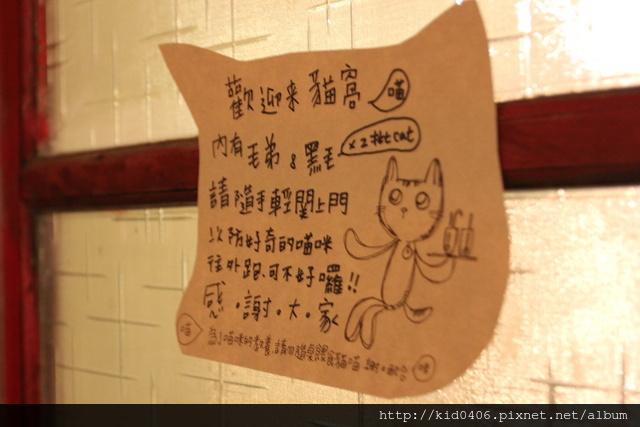 歡迎來貓窩 喵
內有毛弟&黑毛 x2隻cat
請隨手輕關上門
以防好奇的喵咪
往外跑、可不好囉!!
感·謝·大·家
喵 為了喵咪的教養,請勿隨便餵食貓喵 謝·謝 喵
http://kid0406.pixnet.net/album